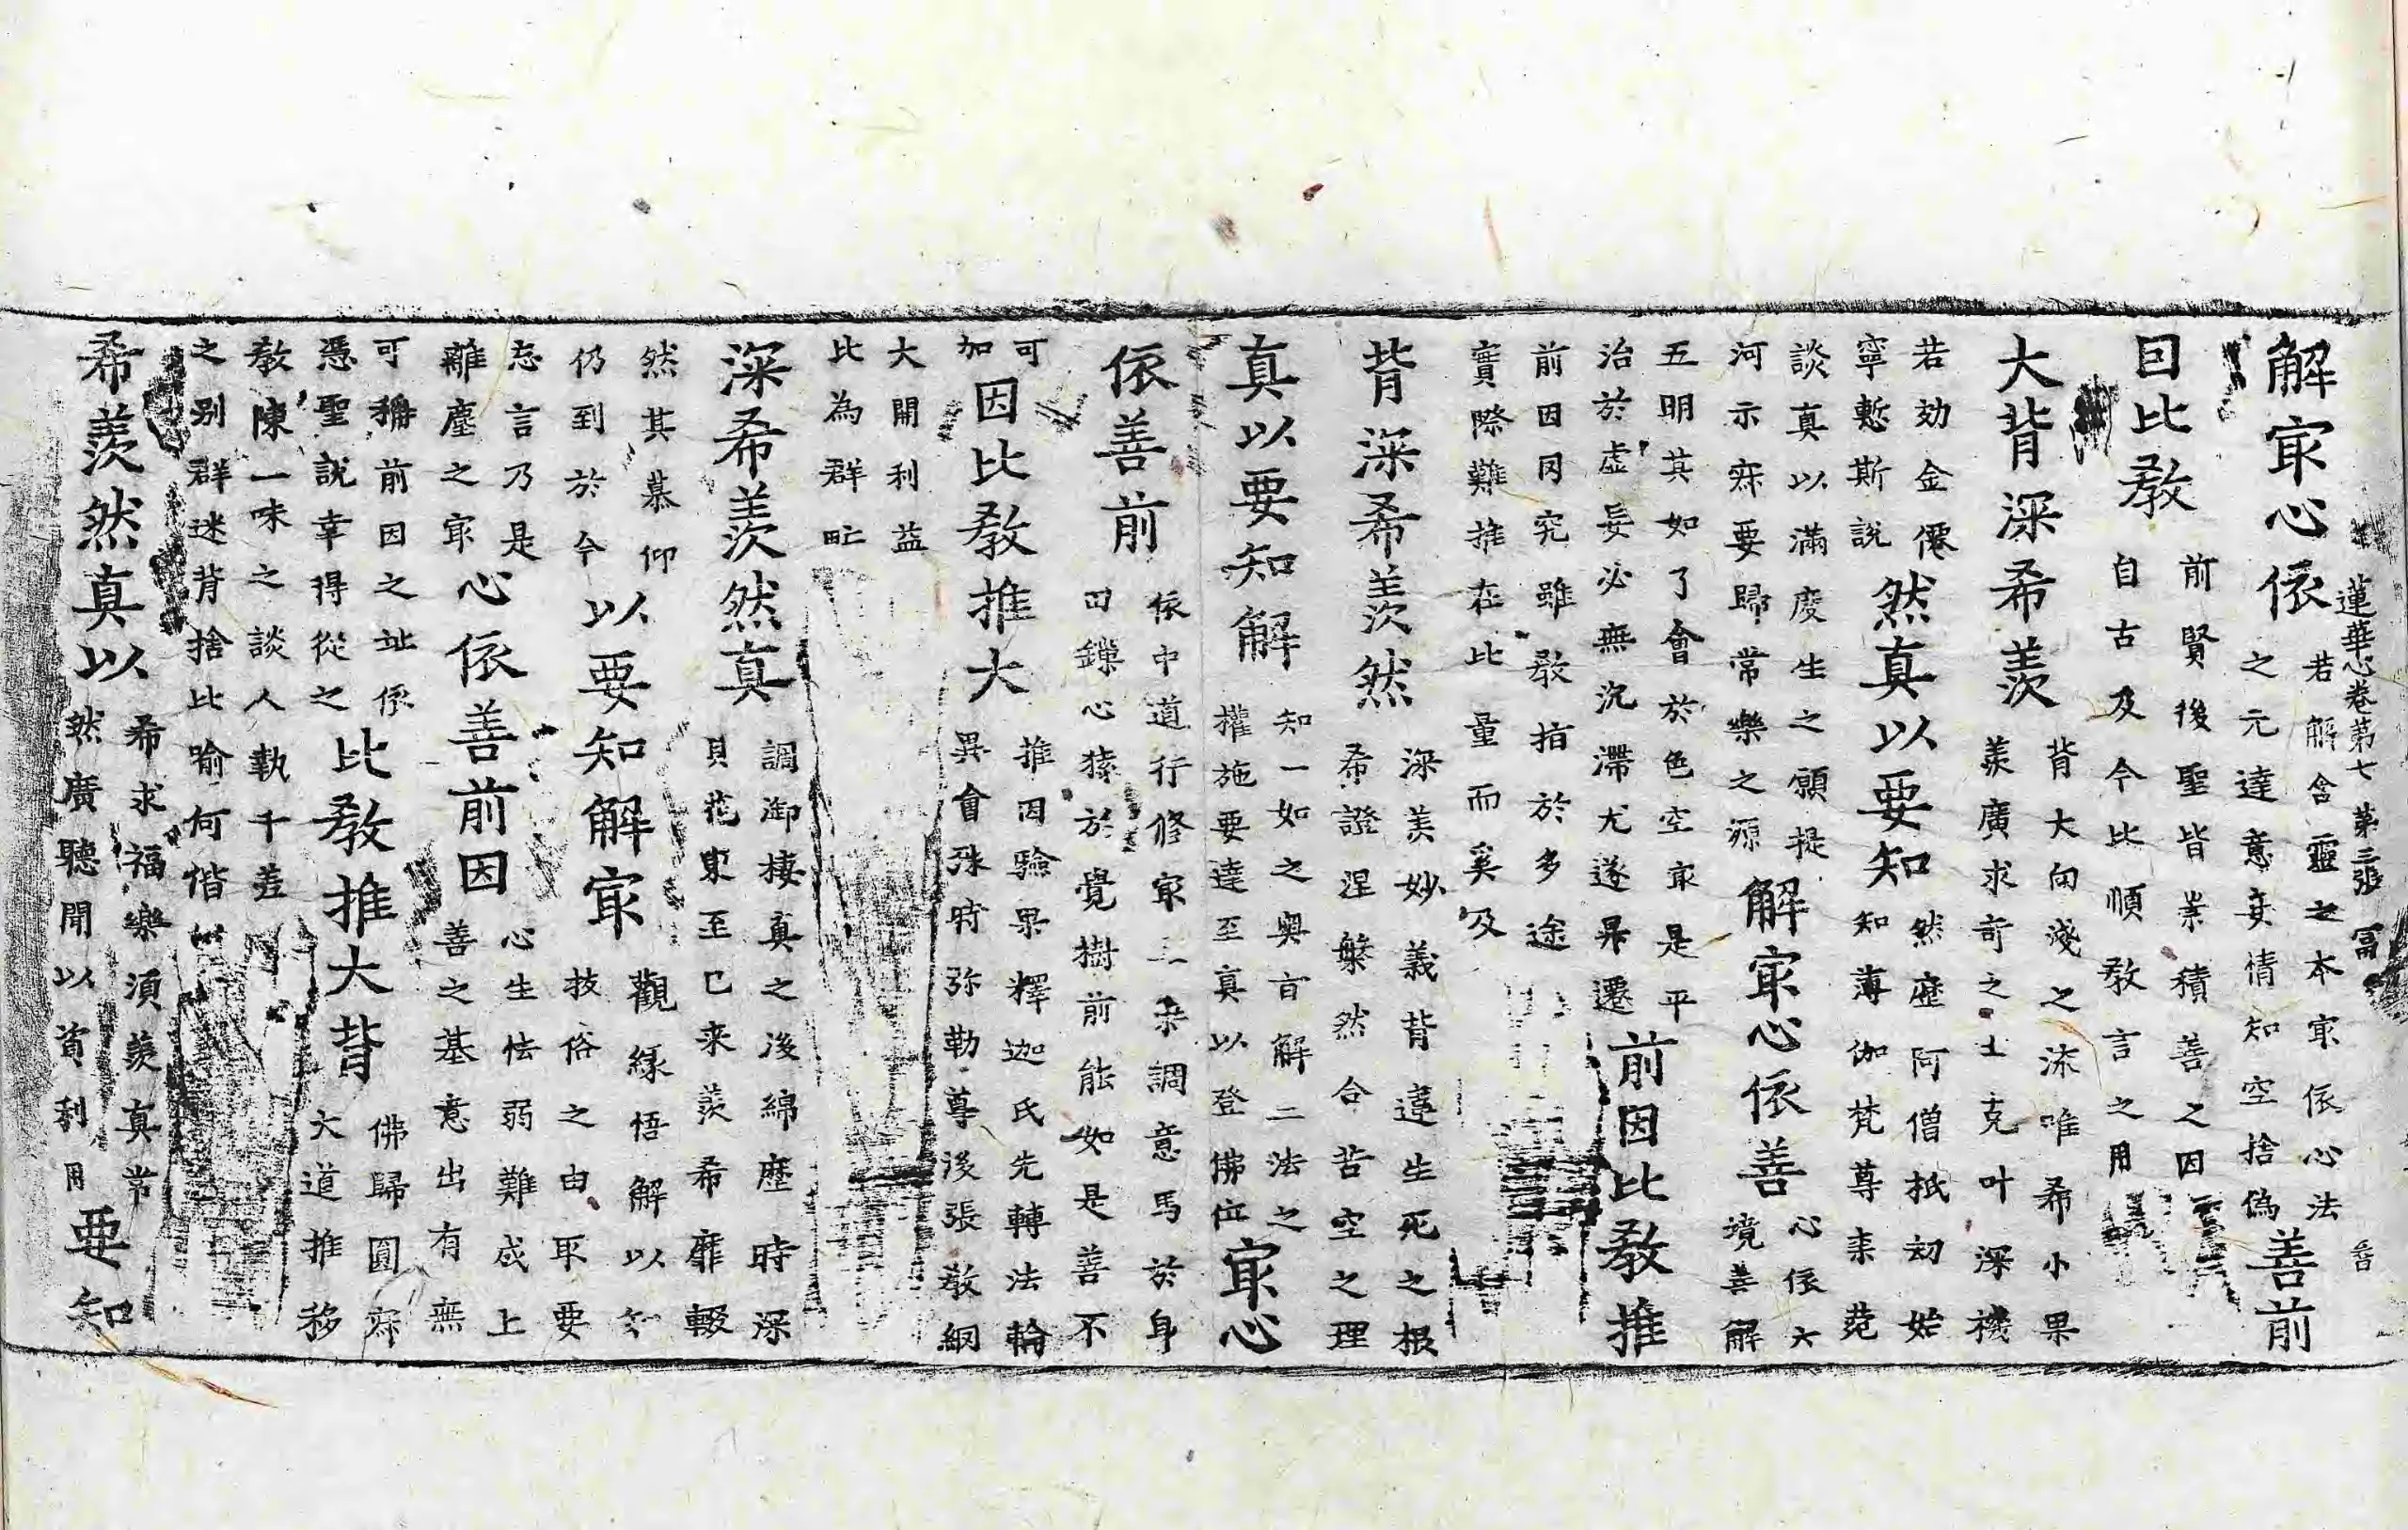 蓮華心卷第七 第三張 冨
解冣心依
若解含靈之本冣依心法
之元達意妄情知空捨偽
善前
因比教
前賢後聖皆崇積善之因
自古及今比順教言之用
大背深希羨
背大向淺之流唯希小果
羨廣求奇之士克叶深機
若効金僊
寧慙斯說
然真以要知
然歷阿僧祇刧始
知薄伽梵尊柰苑
談真以滿度生之願提
河示寂要歸常樂之源
解冣心依善
心依六
境善解
五明其如了會於色空冣是平
治於虛妄必無沉滯尤遂昇遷
前因比教推
前因同究雖教指於多途
實際難推在比量而奚及
背深希羨然
深羨妙義背違生死之根
希證涅槃然合苦空之理
真以要知解
知一如之奧旨解二法之
權施要達至真以登佛位
冣心
依善前
依中道行修冣三乘調意馬於身
田鏁心猿於覺樹前能如是善不
可
加
因比教推大
推因驗果釋迦氏先轉法輪
異會殊時弥勒尊後張教網
大開利益
比為群甿
深希羨然真
調御棲真之後綿歷時深
貝花東至已来羨希靡輟
然其慕仰
仍到於今
以要知解冣
觀緣悟解以知
技俗之由冣要
忘言乃是
離塵之冣
心依善前因
心生怯弱難成上
善之基意出有無
可稱前因之址依
憑聖說幸得從之
比教推大背
佛歸圓寂
大道推移
教陳一味之談人執千差
之別群迷背捨比喻何偕
希羨然真以
希求福樂須羨真常
然廣聽聞以資利用
要知